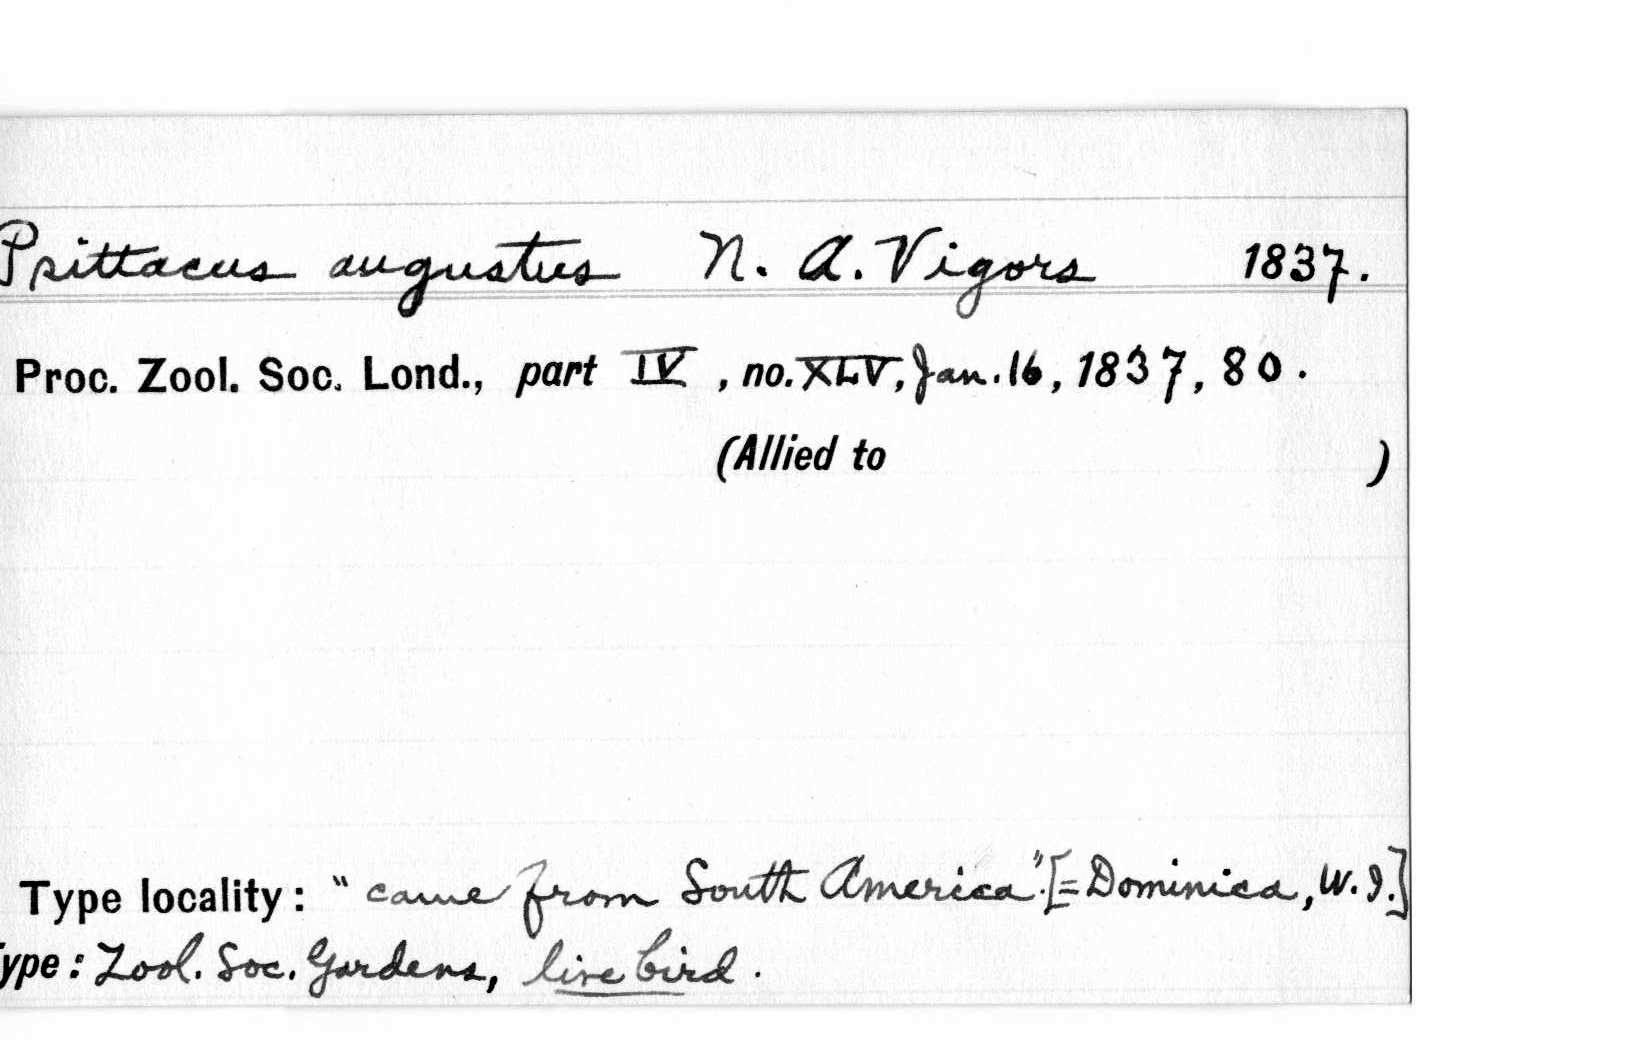 Psittacus augustus N. A. Vigors 1837.
Proc. Zool. Soc. Lond., part IV, no. XLV, Jan. 16, 1837, 80.
(Allied to )
Type locality: "came from South America". [= Dominica, W. I.]
Type: Zool. Soc. Gardens, live bird.